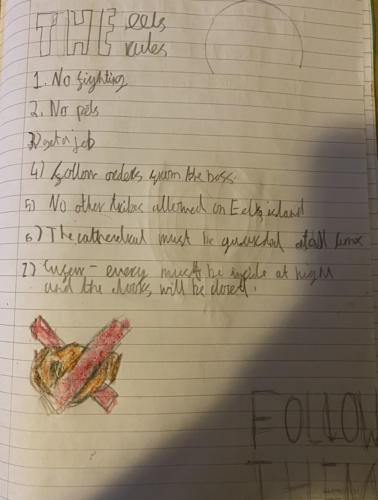 THE eels
rules
1. No fighting
2. No pets
3) get a job
4) follow orders from the boss.
5) No other tribes allowed on Eels island
6) The cathedral must be guarded at all times
7) - every must be inside at night
and the doors will be closed.
FOLLOW
THEM